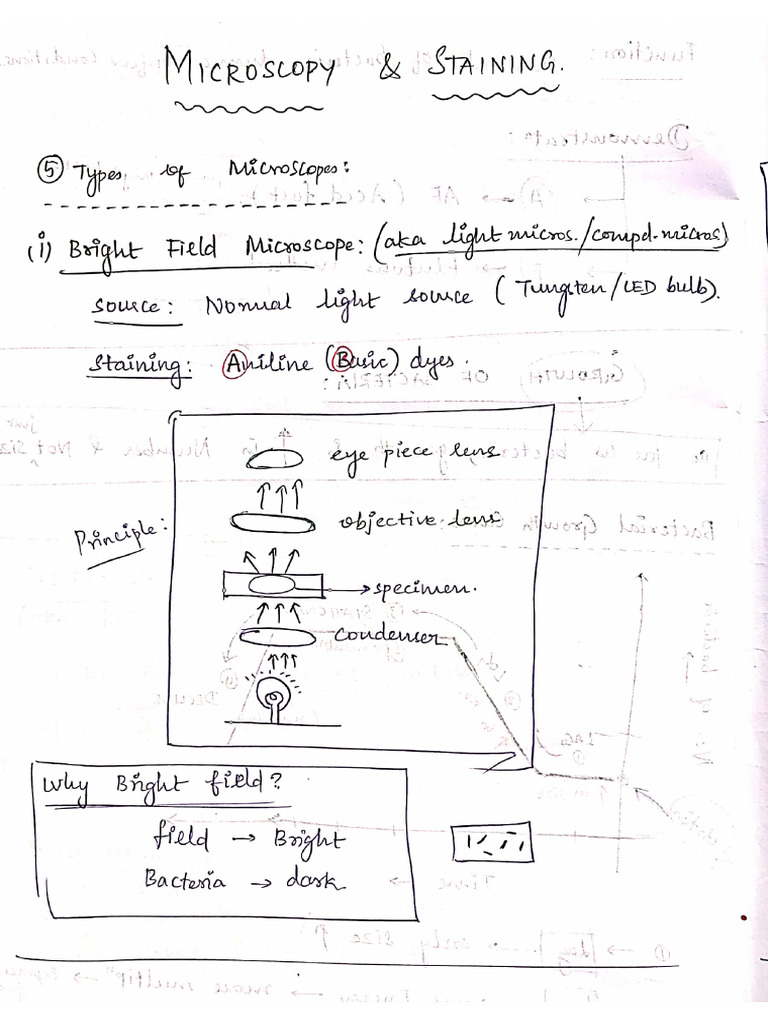 MICROSCOPY & STAINING.
⑤ Types of Microscopes:
(i) Bright Field Microscope: (aka light micros./compd. micros)
source: Normal light source (Tungsten/LED bulb).
Staining: Aniline (Basic) dyes.
Principle:
eye piece lens
objective lens
specimen.
condenser
Why Bright field?
field → Bright
Bacteria → dark